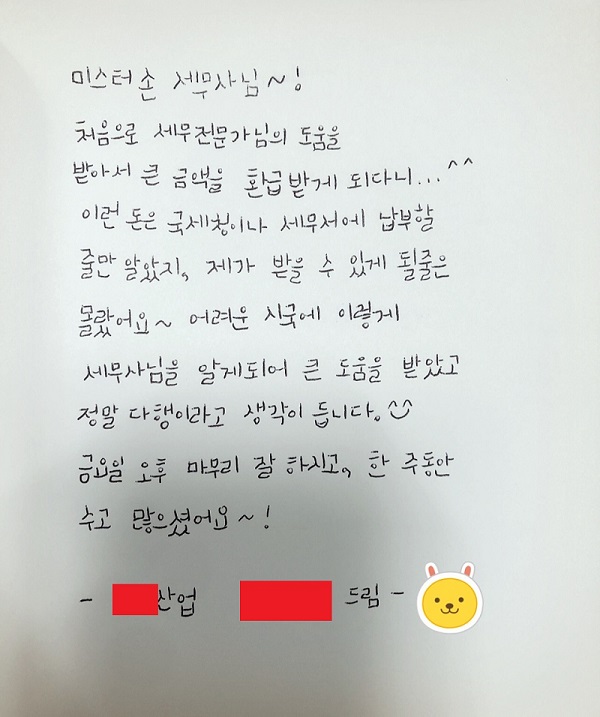 미스터손 세무사님~!
처음으로 세무전문가님의 도움을
받아서 큰 금액을 환급받게 되다니...^^
이런 돈은 국세청이나 세무서에 납부할
줄만 알았지, 제가 받을 수 있게 될줄은
몰랐어요~ 어려운 시국에 이렇게
세무사님을 알게되어 큰 도움을 받았고
정말 다행이라고 생각이 듭니다.
금요일 오후 마무리 잘 하시고, 한 주동안
수고 많으셨어요~!
- 산업 드림 -